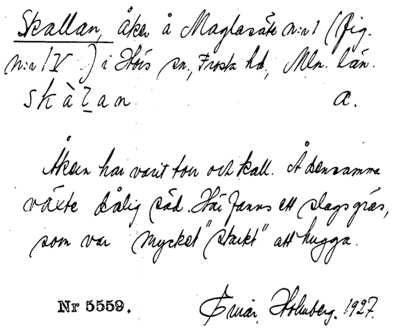 Skallan, åker å Maglasäte n:r 1 (fig.
n:r IV) i Hörs sn, Frosta hd, Mlm. län.
skàlan a.
Åkern har varit torr och kall. Å densamma
växte dålig säd. Här fanns ett slags gräs,
som var mycket "starkt" att hugga.
Nr 5559. Einar Holmberg. 1927.